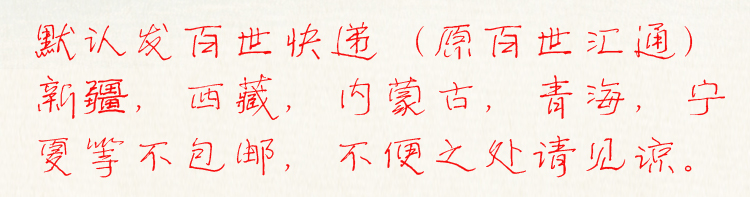 默认发百世快递（原百世汇通）
新疆，西藏，内蒙古，青海，宁
夏等不包邮，不便之处请见谅。